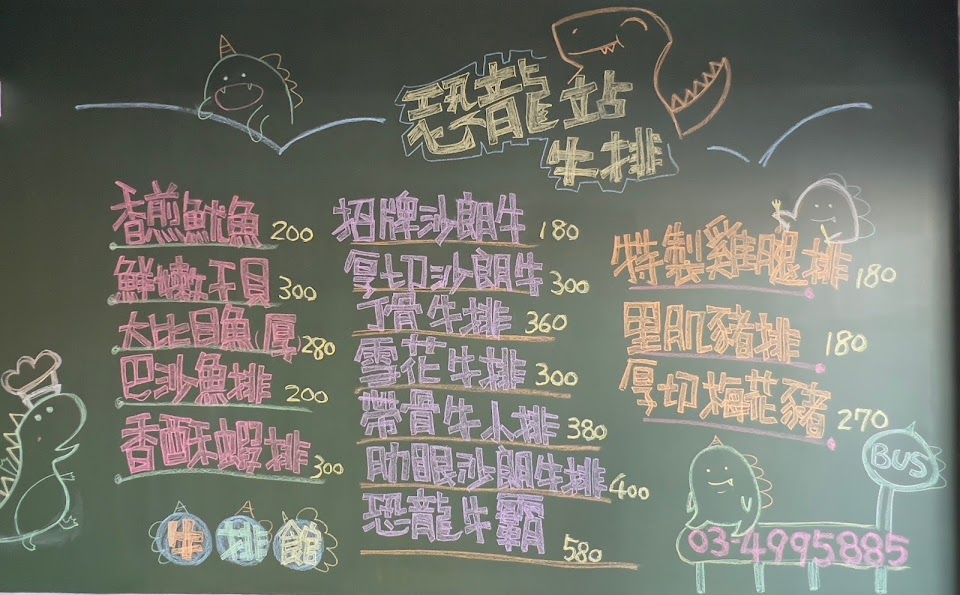 恐龍站
牛排
香煎魷魚 200
鮮嫩干貝 300
大比目魚(厚) 280
巴沙魚排 200
香酥蝦排 300
牛排館
招牌沙朗牛 180
厚切沙朗牛 300
丁骨牛排 360
雪花牛排 300
帶骨牛小排 380
肋眼沙朗牛排 400
恐龍牛霸 580
特製雞腿排 180
里肌豬排 180
厚切梅花豬 270
BUS
03-4995885